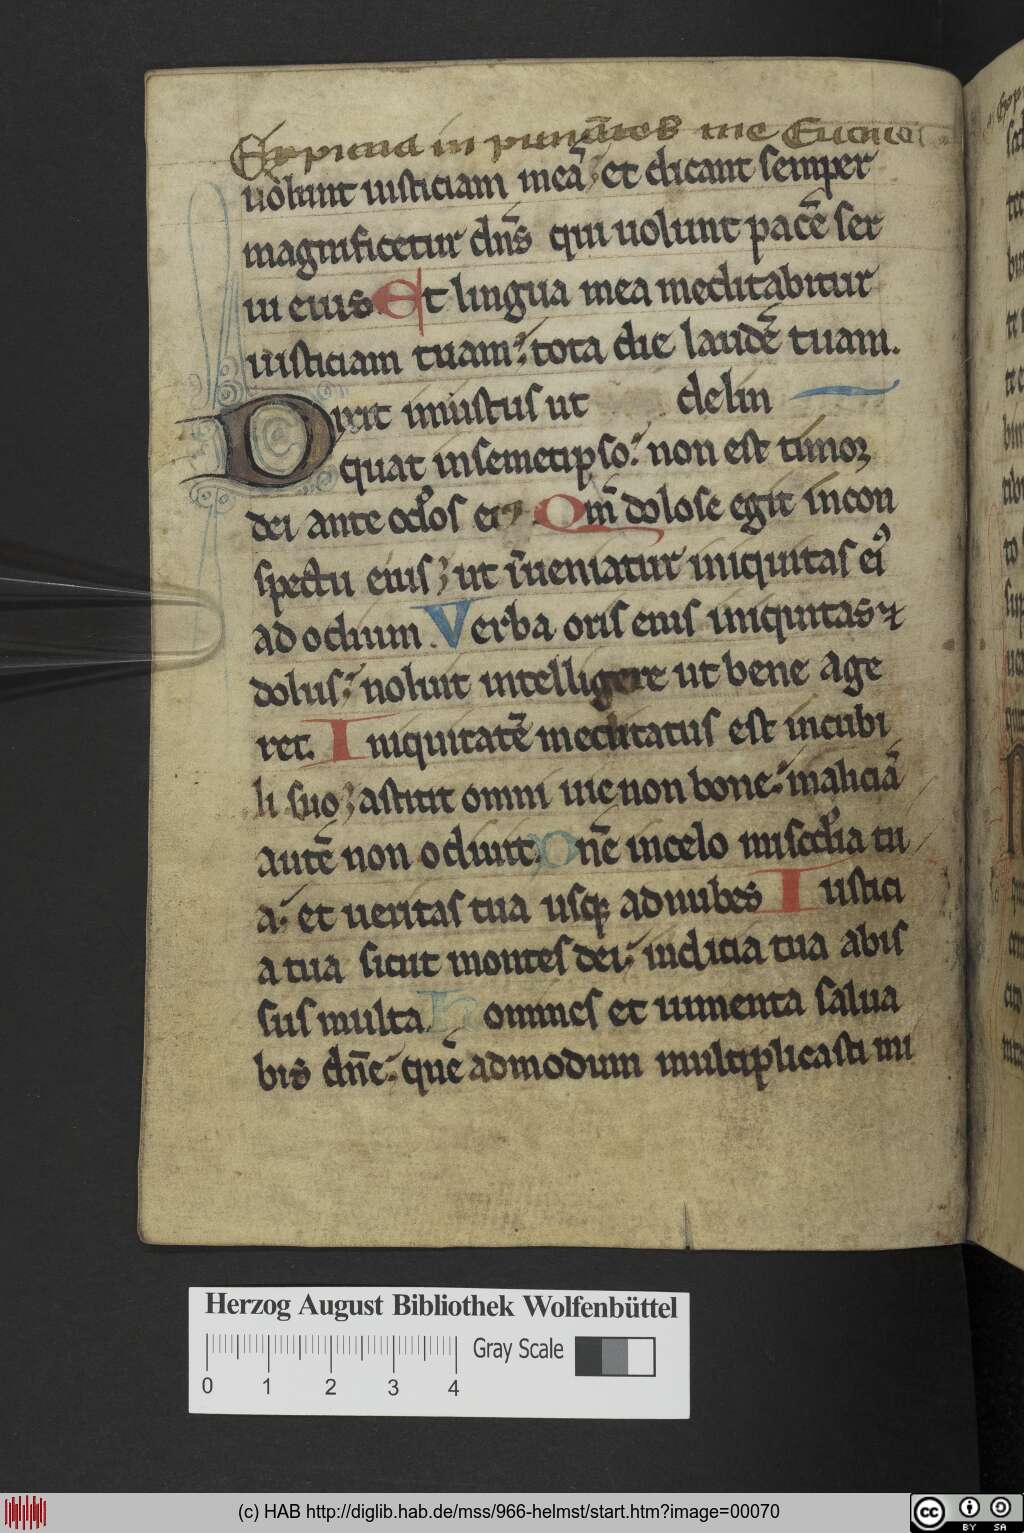 Expugna inpugnātes me Euouae
uolunt iusticiam meā ; et dicant semper
magnificetur dn̄s qui uolunt pacē ser
ui eius Et lingua mea meditabitur
iusticiam tuam : tota die laudē tuam.
Dixit iniustus ut delin
quat in semetipso : non est timor
dei ante oclos ei Qm̄ dolose egit incon
spectu eius ; ut īueniatur iniquitas ei᷒
ad odium . Verba oris eius iniquitas ⁊
dolus : noluit intelligere ut bene age
ret. Iniquitatē meditatus est incubi
li suo ; astitit omni uie non bone : maliciā
autē non odiuit. Dn̄e incelo miscd̄ia tu
a : et ueritas tua usq; ad nubes Iustici
a tua sicut montes dei : iudicia tua abis
sus multa. Homines et iumenta salua
bis dn̄e : quē admodum multiplicasti mi
Herzog August Bibliothek Wolfenbüttel
Gray Scale
0 1 2 3 4
(c) HAB http://diglib.hab.de/mss/966-helmst/start.htm?image=00070
cc BY SA